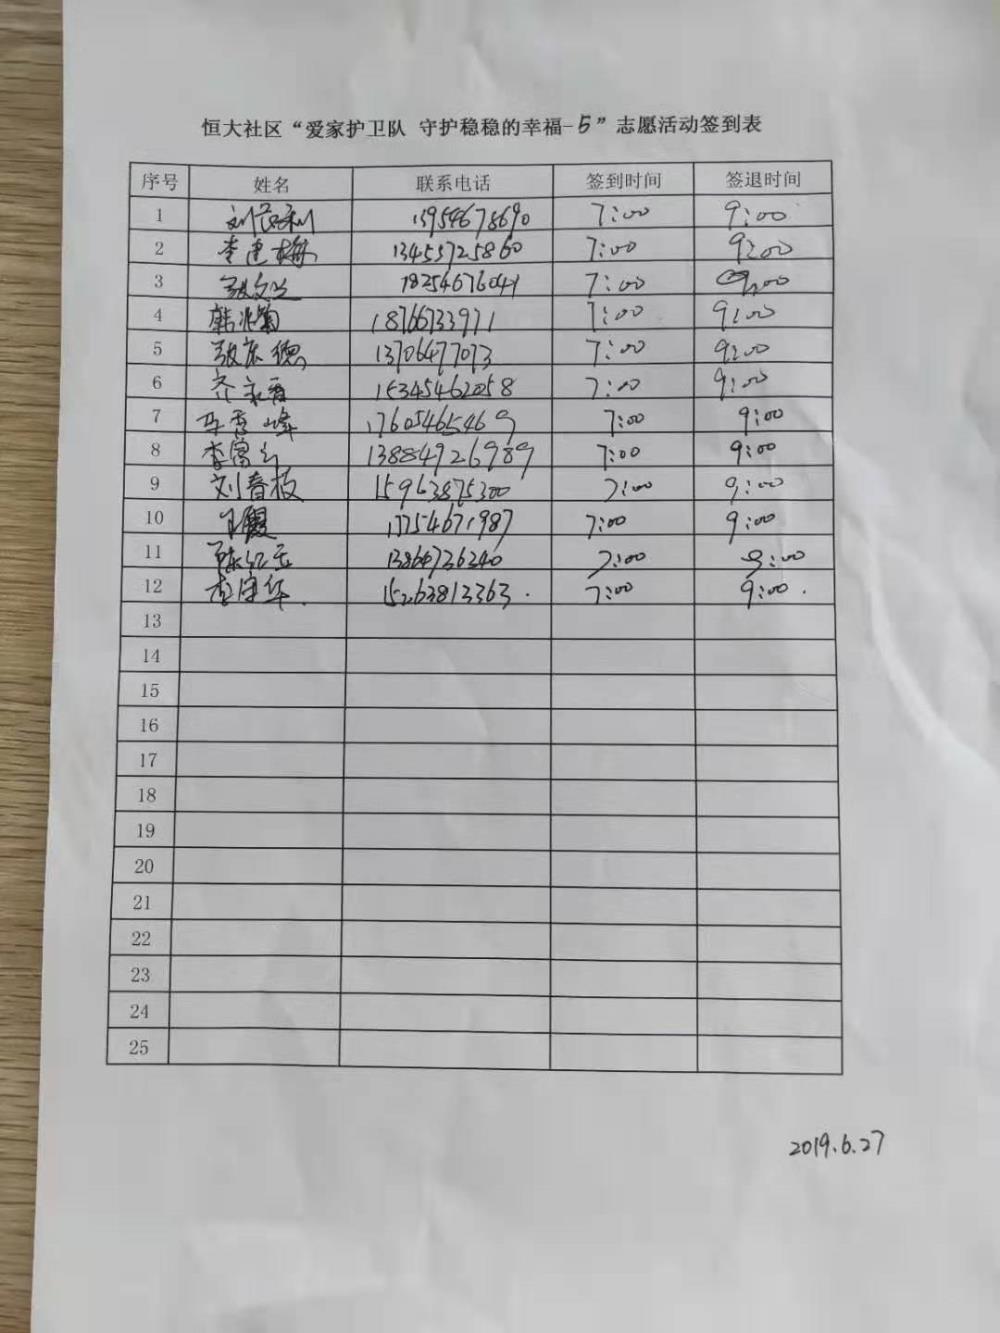 恒大社区“爱家护卫队 守护稳稳的幸福-5”志愿活动签到表
序号 姓名 联系电话 签到时间 签退时间
1 13954678690 7:00 9:00
2 李建梅 13455725860 7:00 9:00
3 18254676041 7:00 9:00
4 韩兆菊 18766733971 7:00 9:00
5 13706477073 7:00 9:00
6 齐 15345462058 7:00 9:00
7 17605465469 7:00 9:00
8 李富 13884926989 7:00 9:00
9 刘春枝 15963875300 7:00 9:00
10 王霞 17754671987 7:00 9:00
11 13864736340 7:00 9:00
12 15263813363. 7:00 9:00.
13
14
15
16
17
18
19
20
21
22
23
24
25
2019.6.27